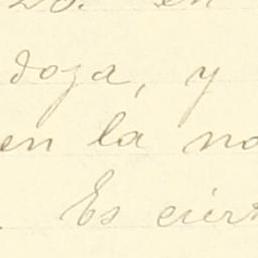 20. en
doza, y
en la no
. Es ciert